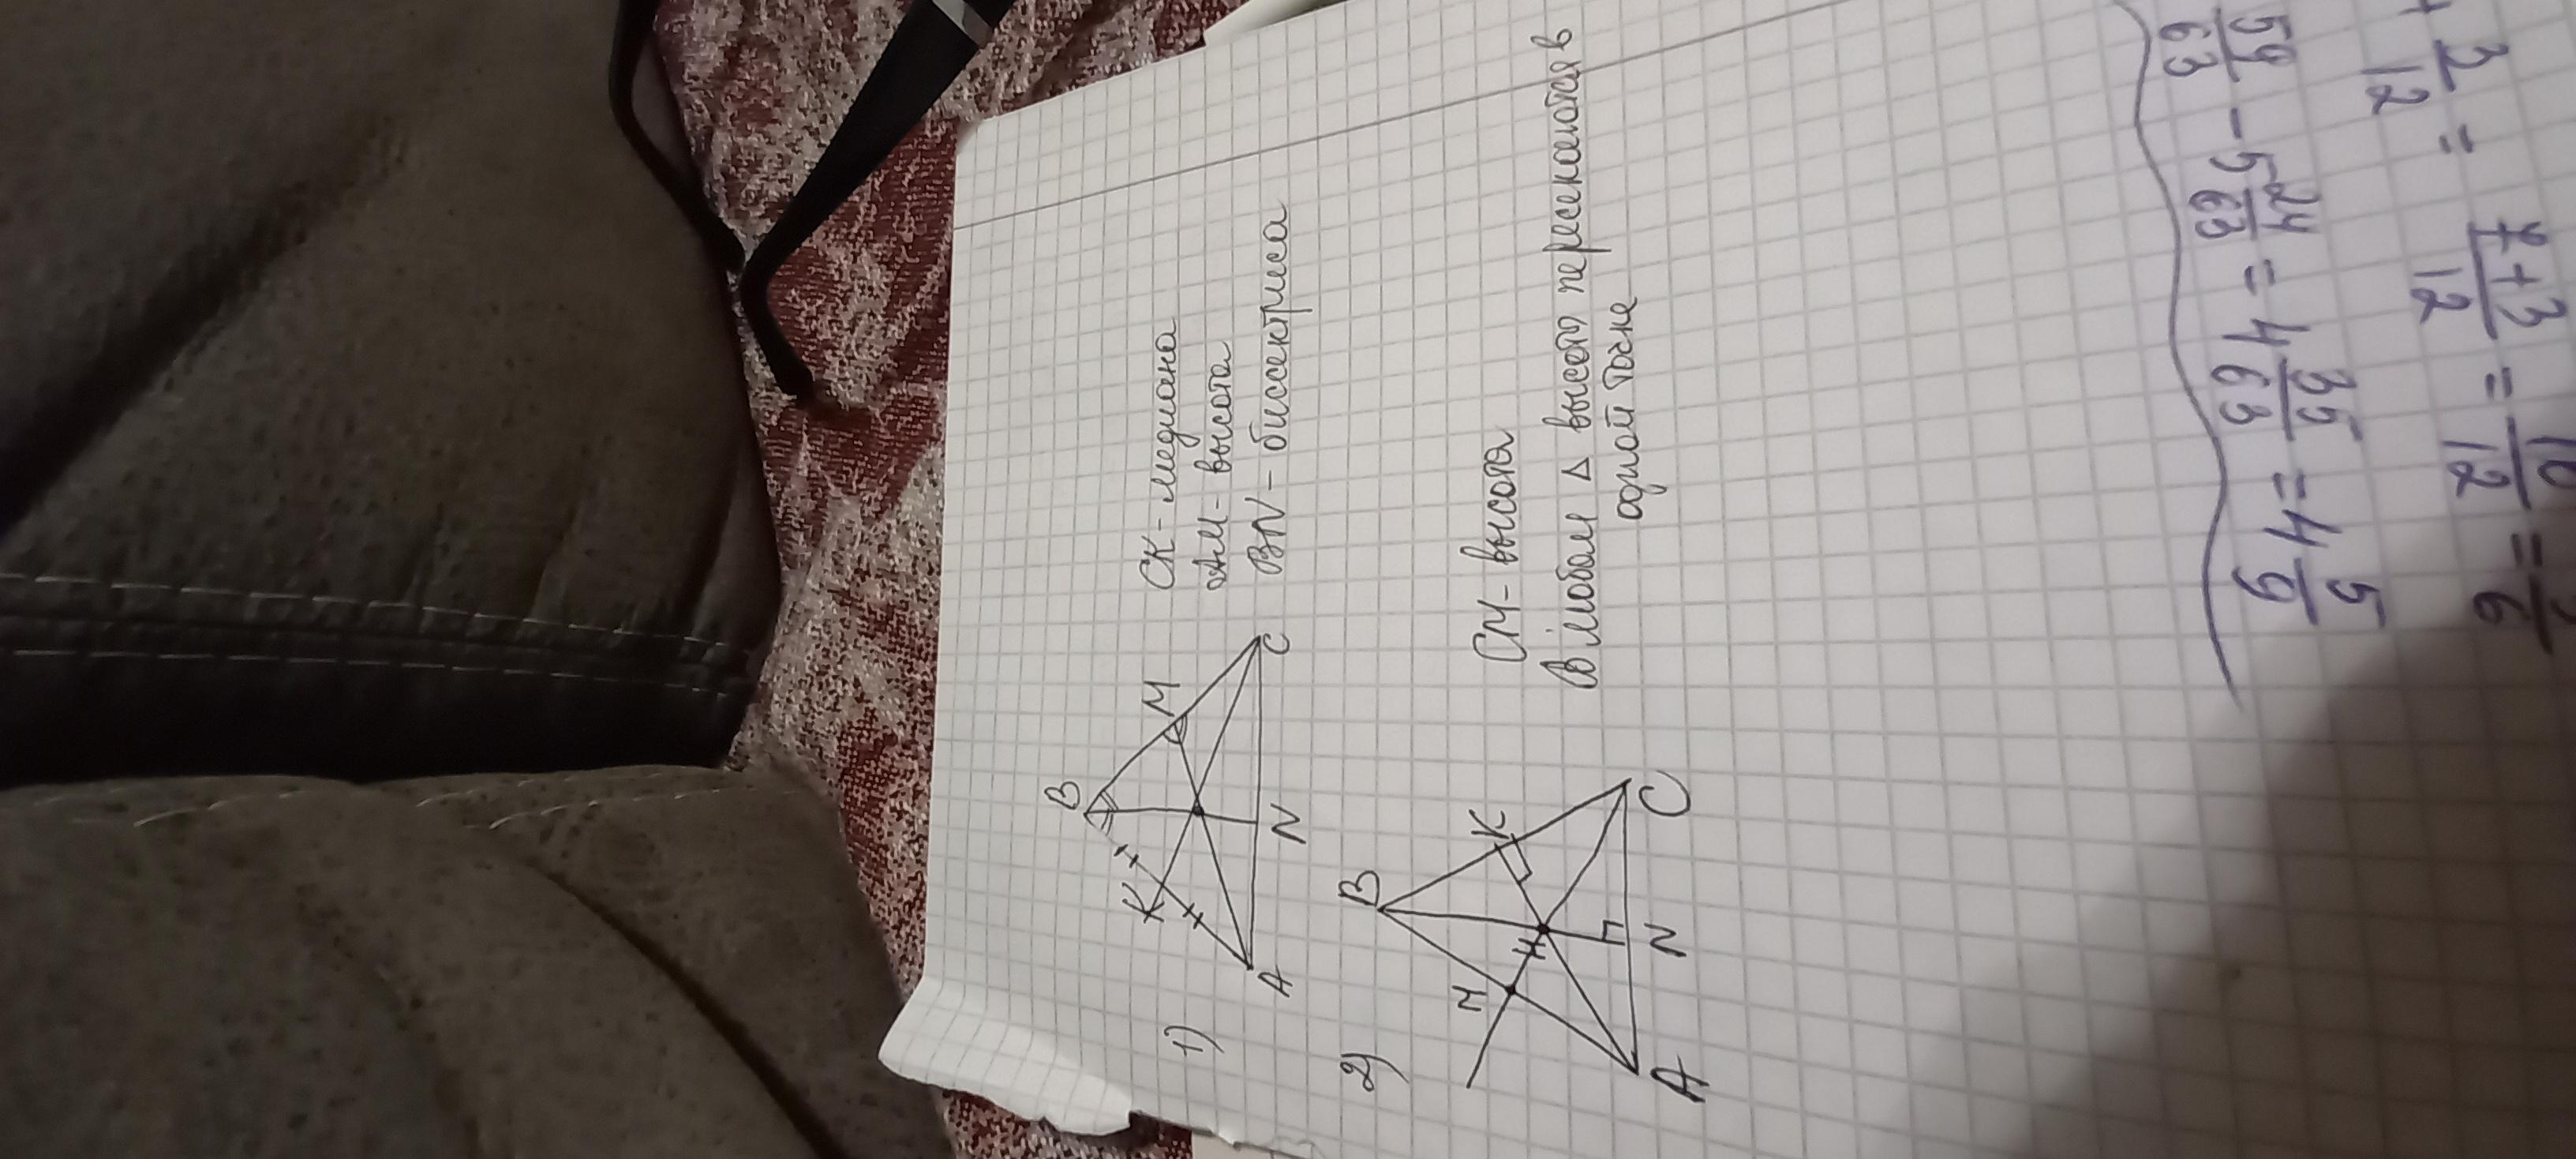 1)
B
K
M
A
N
C
CK - медиана
AM - высота
BN - биссектриса
2)
B
M
K
H
A
N
C
CM - высота
В любом △ высоты пересекаются в
одной точке
59/63 - 5 24/63 = 4 35/63 = 4 5/9
+ 3/12 = 7+3/12 = 10/12 = 5/6